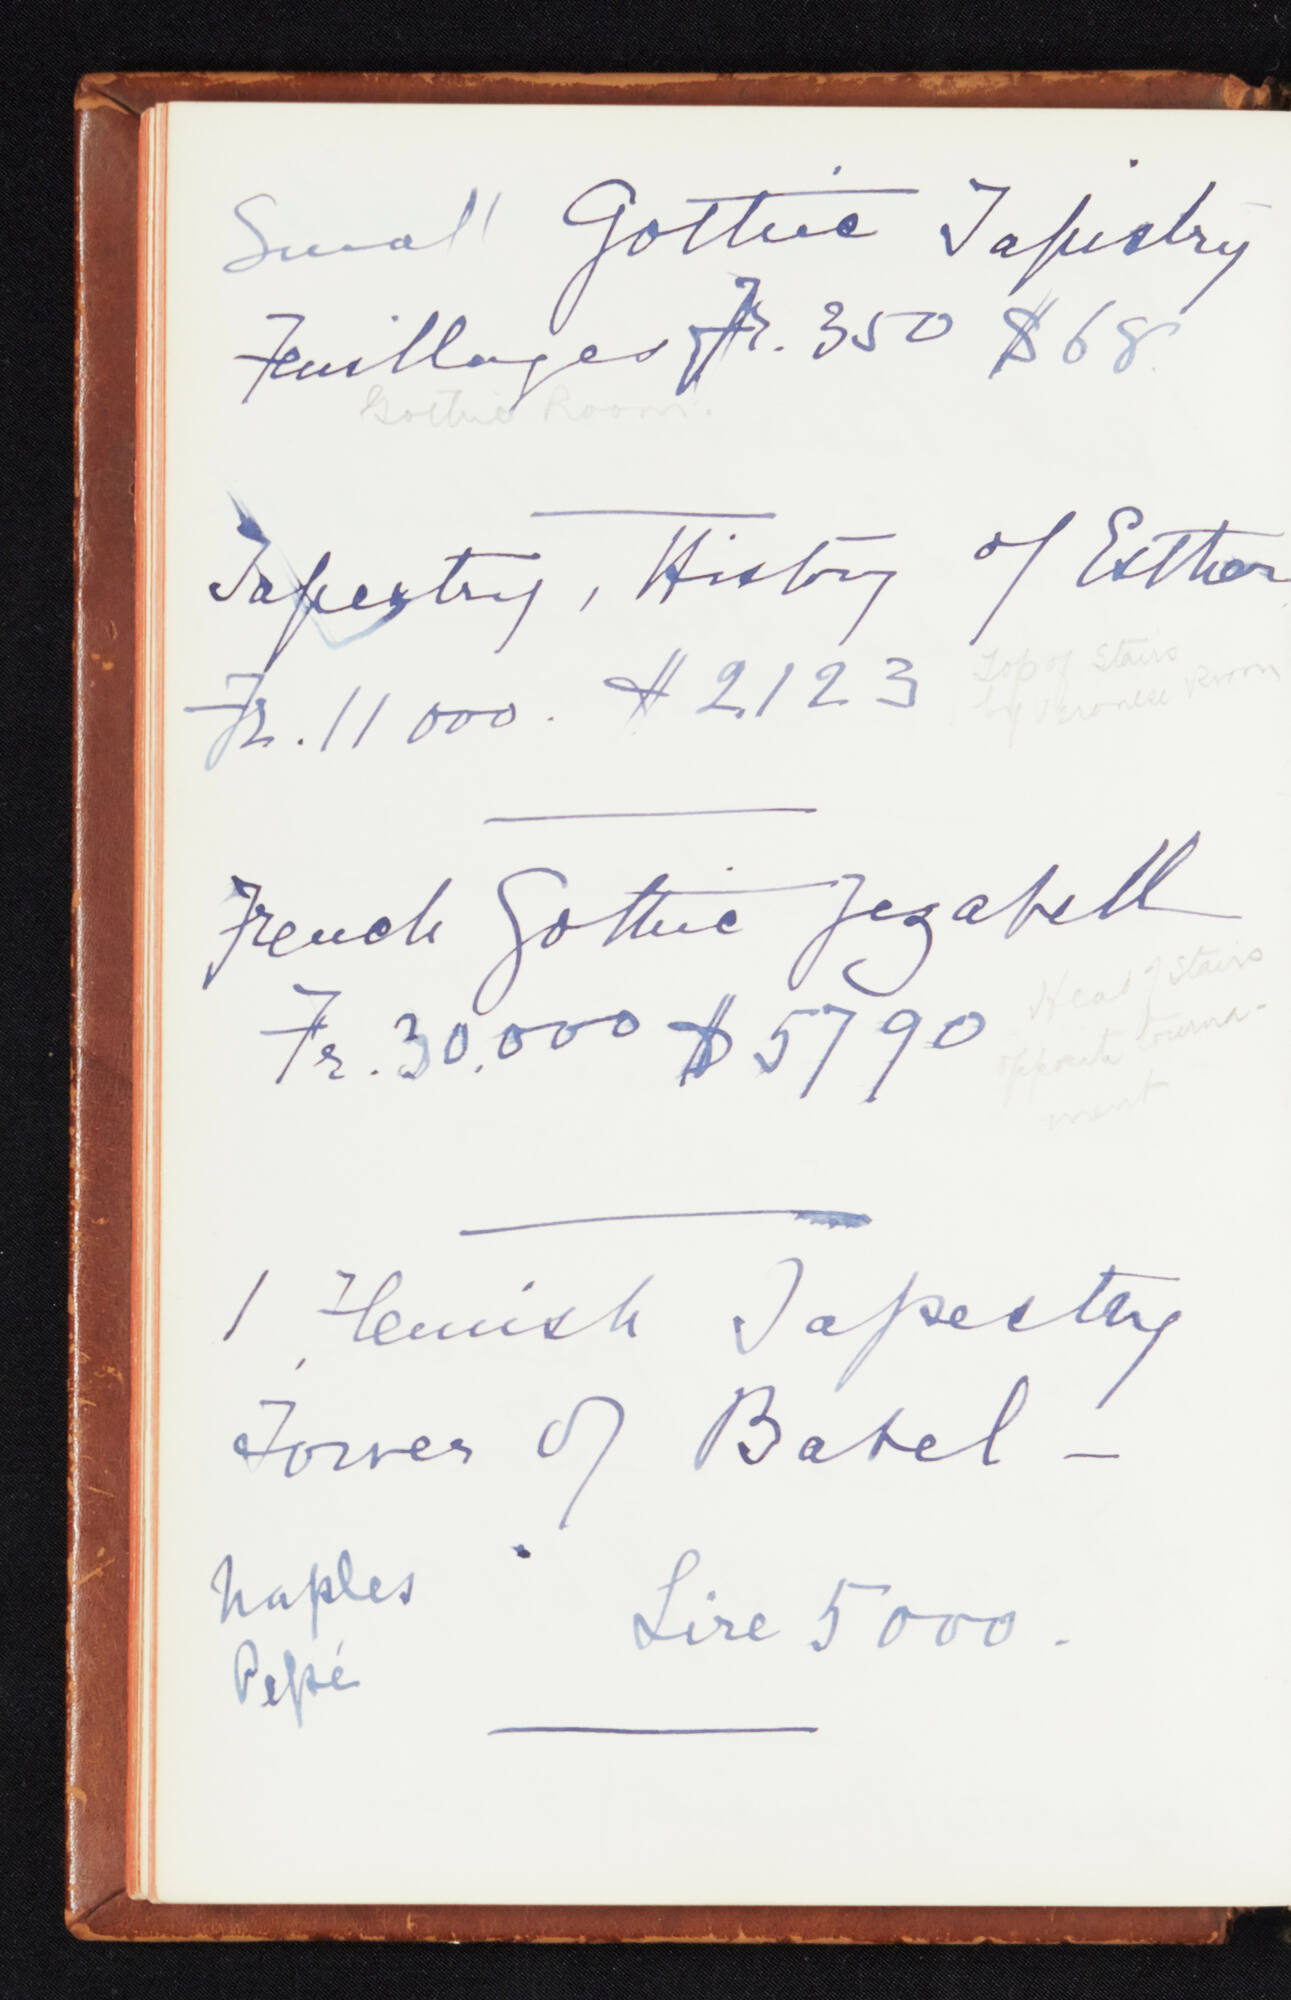 Small Gothic Tapistry
Feuillages Fr. 350 $68.
Gothic Room.
Tapestry, History of Esther
Fr. 11 000. $2123
Top of Stairs
by Veronese Room
French Gothic Jezabell
Fr. 30,000 $5790
Head of Stairs
opposite Tourna-
ment
1 Flemish Tapestry
Tower of Babel –
Naples
Lire 5000.
Pepé